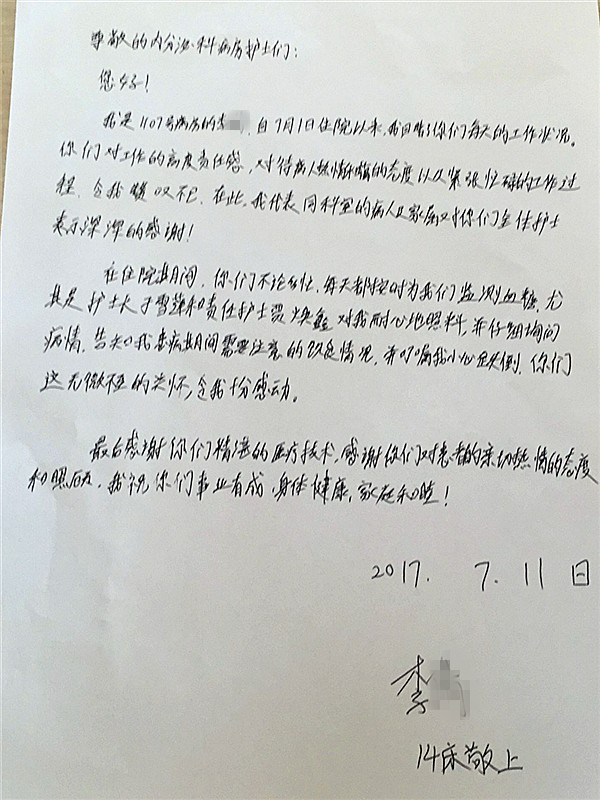 尊敬的内分泌科病房护士们：
您好！
我是1107号病房的李，自7月1日住院以来，我目睹了你们每天的工作状况。
你们对工作的高度责任感，对待病人热情和蔼的态度以及紧张忙碌的工作过
程，令我赞叹不已，在此，我代表同科室的病人及家属对你们全体护士
表示深深的感谢！
在住院期间，你们不论多忙，每天都按时为我们监测血糖，尤
其是护士长于雪 和责任护士贾焕 对我耐心地照料，并仔细询问
病情，告知我患病期间需要注意的饮食情况，并叮嘱我小心跌倒，你们
这无微不至的关怀，令我十分感动。
最后感谢你们精湛的医疗技术，感谢你们对患者的亲切热情的态度
和照顾，我祝你们事业有成，身体健康，家庭和睦！
2017. 7. 11日
李
14床敬上